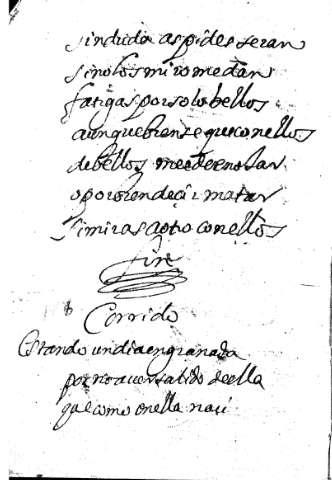 sinduda aspides seran
sinolos miro medan
fatigas por solo bellos
aunque bien se que con ellos
de bellos me
o por rendec i matar
si miras aotro con ellos
fin
Corrido
estando undia en granada
por no aver salido de ella
que como en ella naci